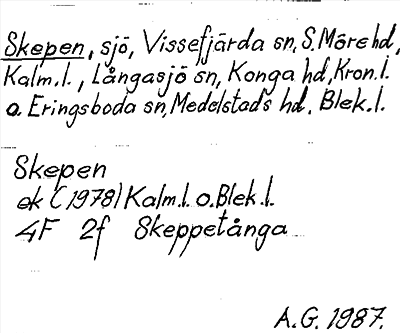 Skepen, sjö, Vissefjärda sn, S. Möre hd,
Kalm.l., Långasjö sn, Konga hd, Kron.l.
o. Eringsboda sn, Medelstads hd. Blek.l.
Skepen
ek (1978) Kalm.l. o. Blek.l.
4F 2f Skeppetånga
A.G. 1987.